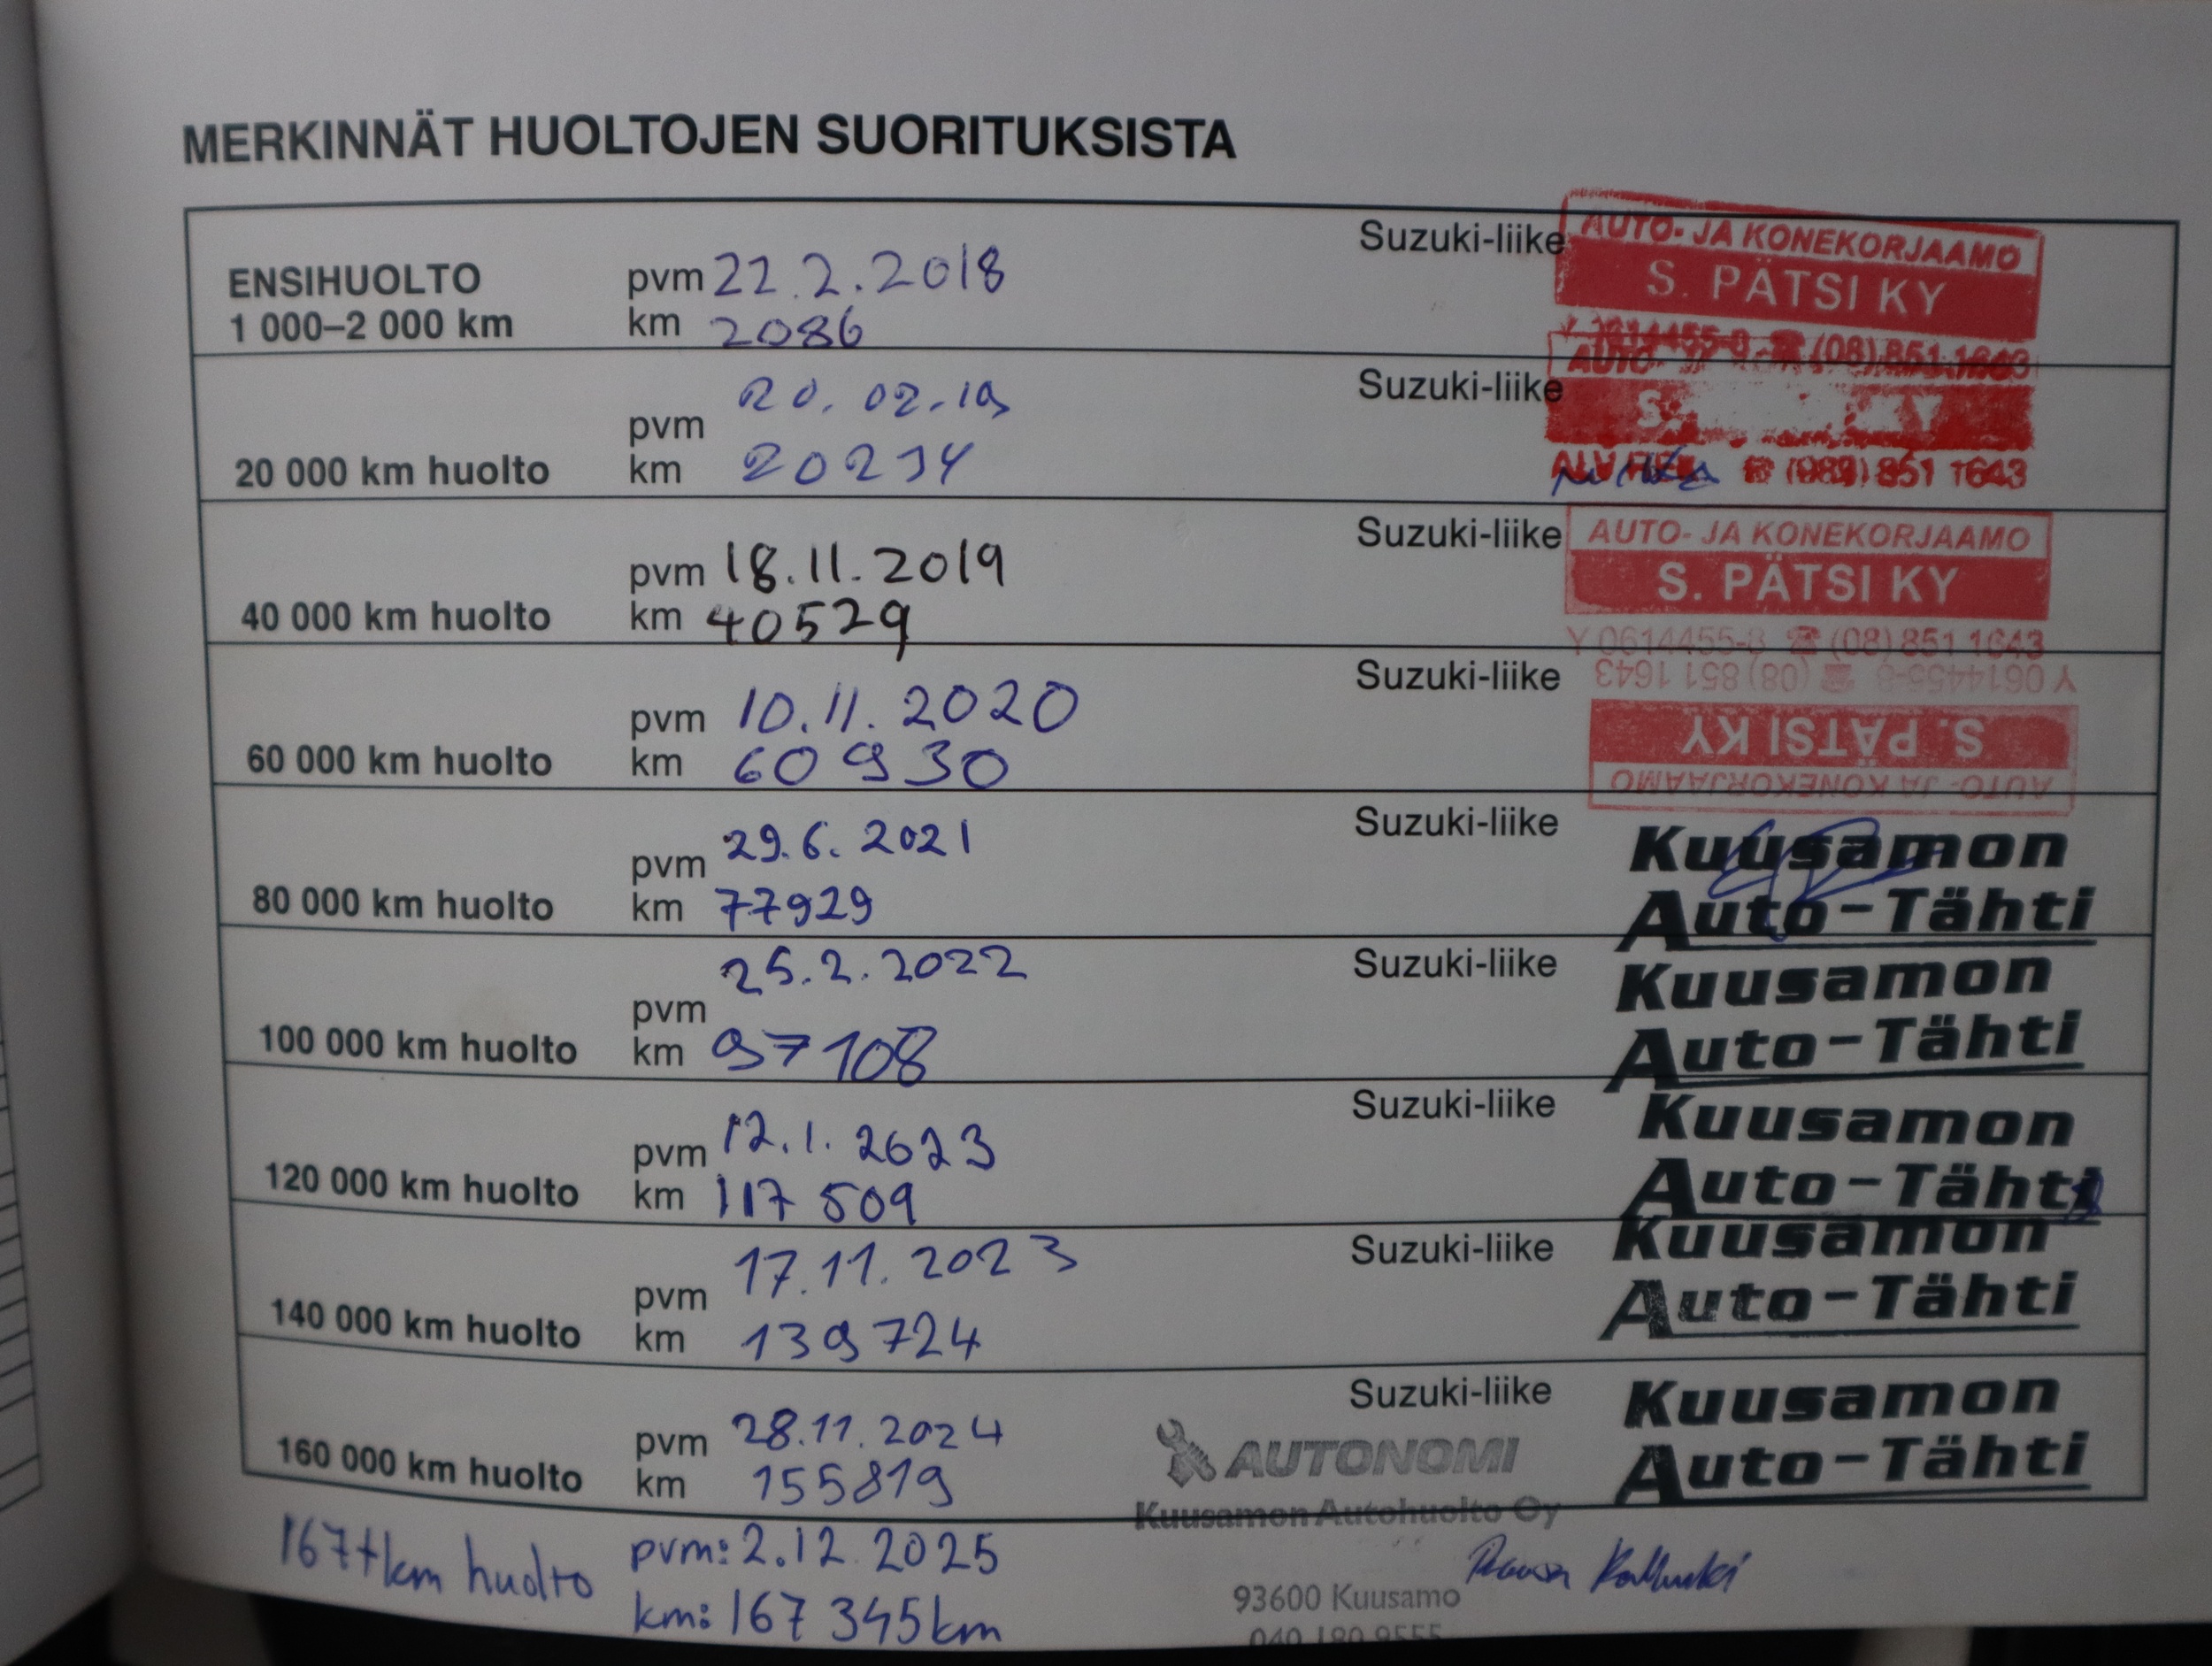 MERKINNÄT HUOLTOJEN SUORITUKSISTA
ENSIHUOLTO
1 000–2 000 km
pvm 22.2.2018
km 2086
Suzuki-liike
AUTO- JA KONEKORJAAMO
S. PÄTSI KY
Y 0614455-8 ☎ (08) 851 1643
20 000 km huolto
pvm 20.02.19
km 20234
Suzuki-liike
AUTO-
S. KY
☎ (989) 851 1643
40 000 km huolto
pvm 18.11.2019
km 40529
Suzuki-liike
AUTO- JA KONEKORJAAMO
S. PÄTSI KY
Y 0614455-8 ☎ (08) 851 1643
60 000 km huolto
pvm 10.11.2020
km 60930
Suzuki-liike
AUTO- JA KONEKORJAAMO
S. PÄTSI KY
Y 0614455-8 ☎ (08) 851 1643
80 000 km huolto
pvm 29.6.2021
km 77929
Suzuki-liike
Kuusamon
Auto-Tähti
100 000 km huolto
pvm 25.2.2022
km 97108
Suzuki-liike
Kuusamon
Auto-Tähti
120 000 km huolto
pvm 12.1.2023
km 117 509
Suzuki-liike
Kuusamon
Auto-Tähti
140 000 km huolto
pvm 17.11.2023
km 139724
Suzuki-liike
Kuusamon
Auto-Tähti
160 000 km huolto
pvm 28.11.2024
km 155819
Suzuki-liike
Kuusamon
Auto-Tähti
AUTONOMI
Kuusamon Autohuolto Oy
93600 Kuusamo
040 180 9555
167tkm huolto
pvm: 2.12.2025
km: 167 345km